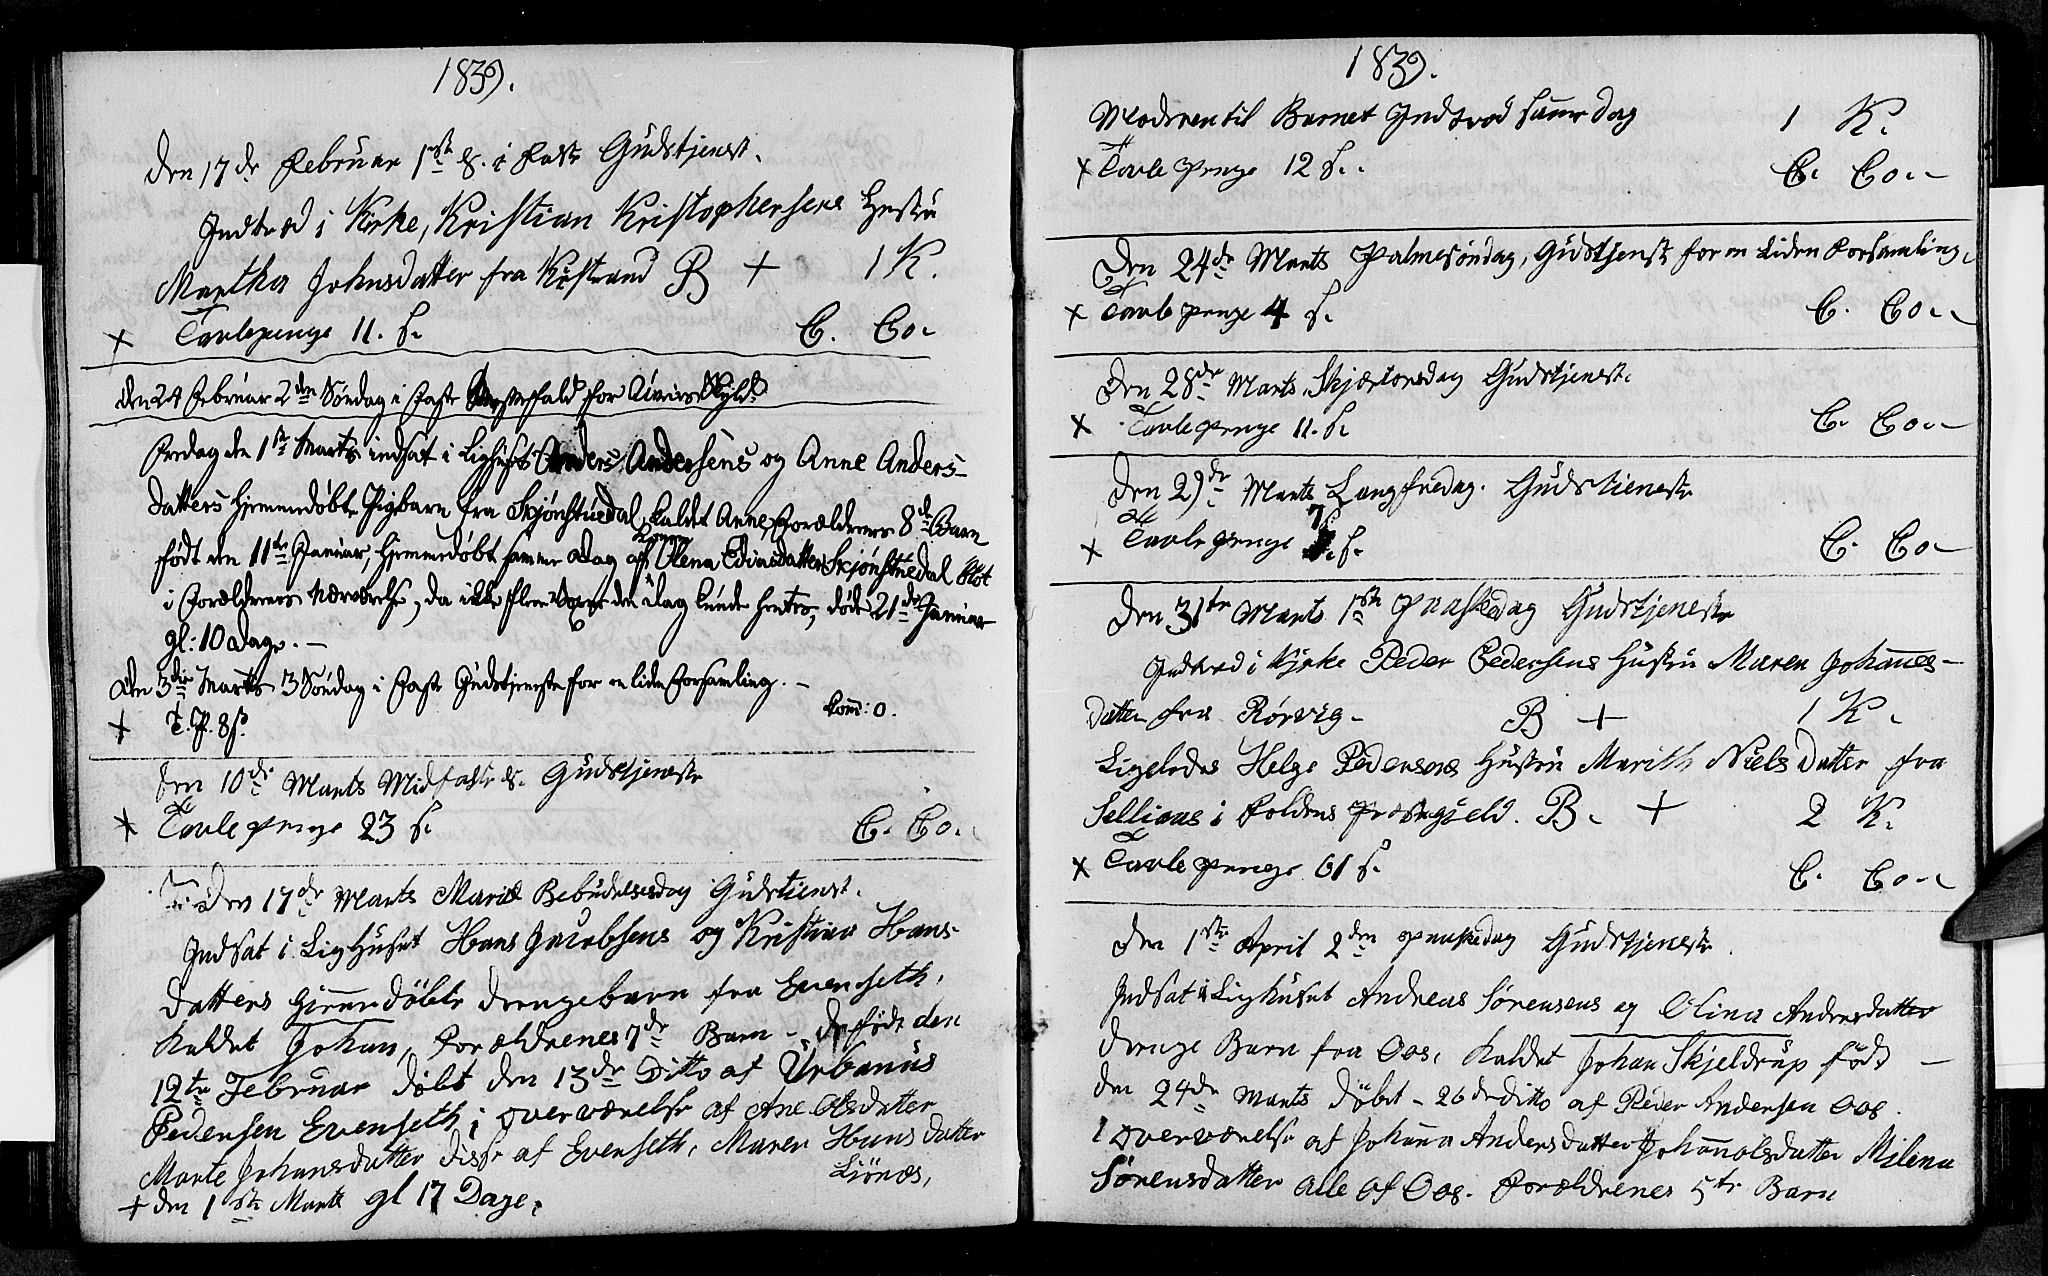 1839.
Den 17de Februar 1ste S. i Faste Gudstjenst.
Indtræd i Kirke, Kristian Kristophersens Hustrü
Martha Johnsdatter fra Kistrand B + 1 K.
+ Tavlepenge 11. s. C. Co.
den 24 Februar 2den Søndag i Faste Messefald for Uveirs Skyld.
Fredag den 1ste Marts indsat i Lighuset Anders Andersens og Anne Anders-
datters hjemmedøbte Pigebarn fra Skjønstuedal, kaldet Anne, Forældrenes 8de Barn
født den 11te Januar, hjemmedøbt samme Dag af Konen Olena Edvinsdatter Skjønstuedal
i Forældrenes Nærværelse, da ikke flere Voxne den Dag kunde hentes, døde 21de Januar
gl: 10 Dage. –
Den 3die Marts 3 Søndag i Faste Gudstjeneste for en liden Forsamling. –
+ T. P. 8 s. Com: 0.
Den 10de Marts Midfaste S. Gudstjeneste
+ Tavlepenge 23 s. C. Co.
Den 17de Marts Mariæ Bebudelsesdag Gudstienst.
Indsat i Lighuset Hans Jacobsens og Kristina Hans-
datters hjemmedøbte drengebarn fra Evenseth,
kaldet Johan, Forældrenes 7de Barn – født den
12te Februar døbt den 13de Ditto af Urbanus
Pedersen Evenseth i overværelse af Ane Olsdatter
Marte Johansdatter disse af Evenseth, Maren Hansdatter
Liønæs,
+ den 1ste Marts gl 17 Dage.
1839.
Modren til Barnet Indtrad samme Dag 1 K.
+ Tavlepenge 12 s. C. Co.
Den 24de Marts Palmesöndag, Gudstjenst for en Liden Forsamling.
+ Tavlepenge 4 s. C. Co.
Den 28de Marts Skjærtorsdag Gudstjenest.
+ Tavlepenge 11. s. C. Co.
Den 29de Marts Langfredag. Gudstieneste
+ Tavlepenge 7 s. C. Co.
Den 31te Marts 1ste Paaskedag Gudstjeneste
Indtrad i Kirke Peder Pedersens Hustru Maren Johannes-
datter fra Rørvig – B + 1 K.
Ligeledes Helge Pedersens Hustru Marith Nielsdatter fra
Selliaas i Foldens Præstegjeld. B. + 2 K.
+ Tavlepenge 61 s. C. Co.
Den 1ste April 2den Paaskedag Gudstjeneste.
Indsat i Lighuset Andreas Sørensens og Olina Andersdatter
Drenge Barn fra Oos, kaldet Johan Skjeldrup født –
den 24de Marts døbt – 26de ditto af Peder Andersen Oos.
i overværelse af Johanna Andersdatter Johanna Olsdatter Milena
Sørensdatter alle af Oos. Forældrenes 5te Barn